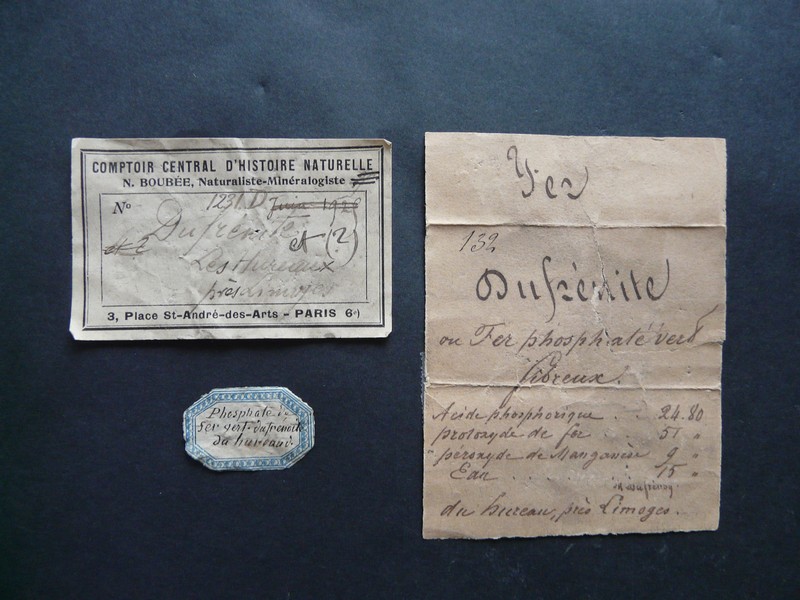 COMPTOIR CENTRAL D'HISTOIRE NATURELLE
N. BOUBÉE, Naturaliste-Minéralogiste
No 1231.D Juin 1928
Dufrénite
et (2)
Les Hureaux
près Limoges
3, Place St-André-des-Arts - PARIS 6e)
Phosphate de
fer vert. dufrénite
du hureaux.
Fer
132
Dufrénite
ou Fer phosphaté vert
fibreux.
Acide phosphorique . . 24.80
protoxyde de fer . . . 51 "
peroxyde de Manganèse 9 "
Eau . . . . . . . 15 "
Dufrénoy
du hureau, près Limoges.